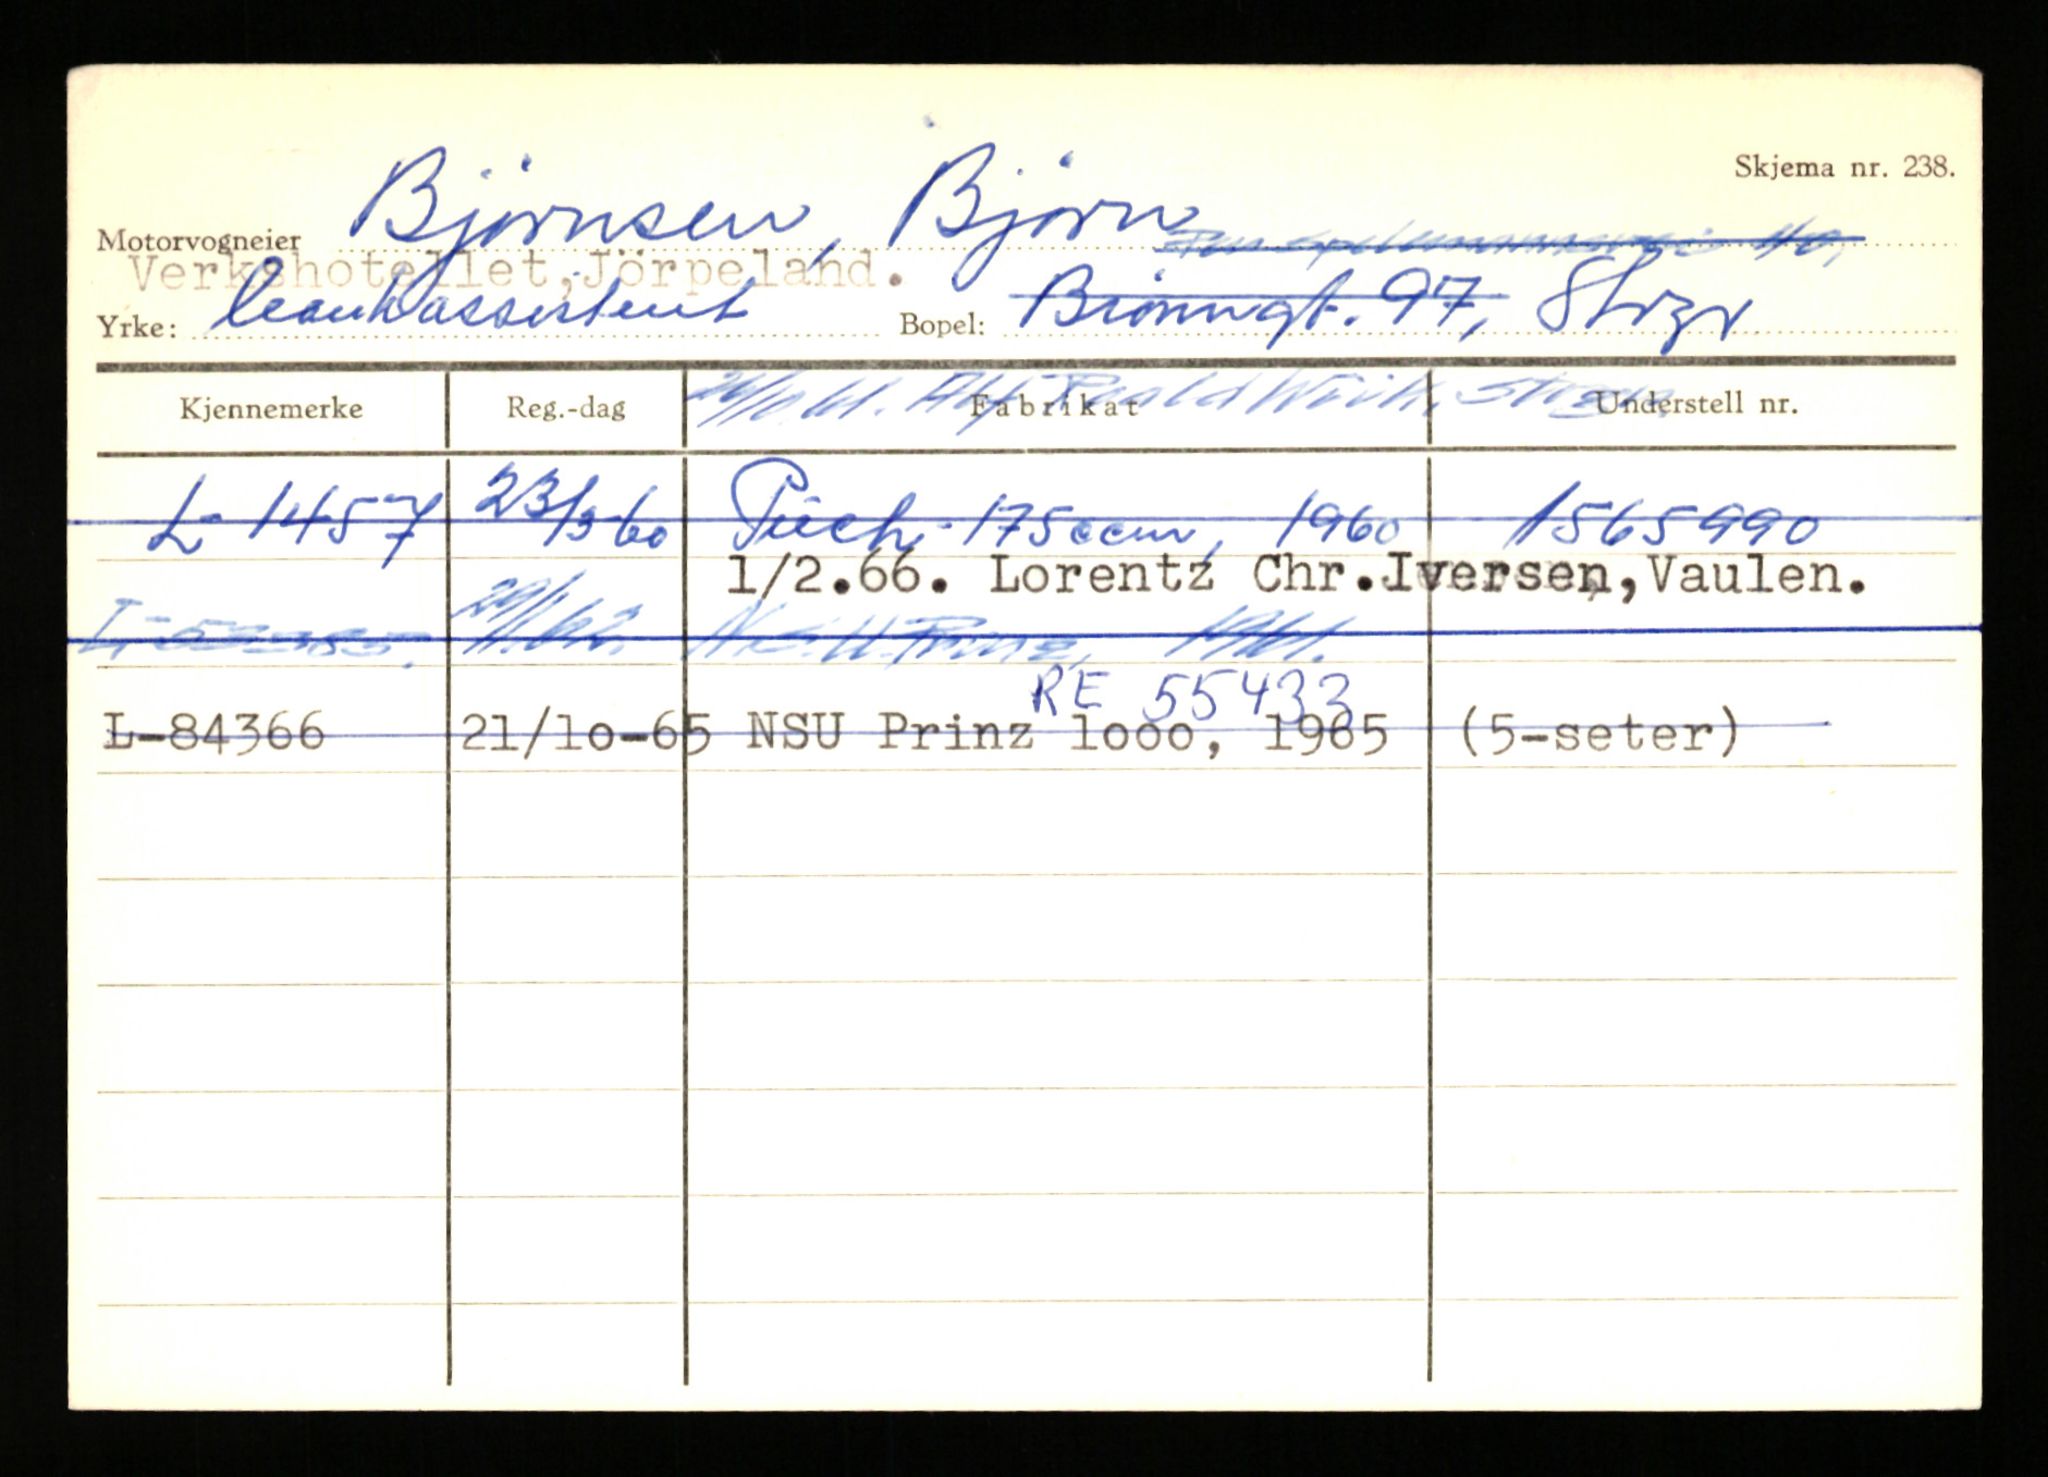 Skjema nr. 238.
Motorvogneier Björnsen, Björn
Verkshotellet,Jörpeland.
Yrke: Bopel: Brønngt. 97, Stvgr
Kjennemerke Reg.-dag Fabrikat Understell nr.
L-1457 23/3 60 Puch 175 ccm, 1960 1565990
1/2.66. Lorentz Chr.Iversen,Vaulen.
N.S.U. Prinz, 1961.
RE 55433
L-84366 21/lo-65 NSU Prinz looo, 1965 (5-seter)